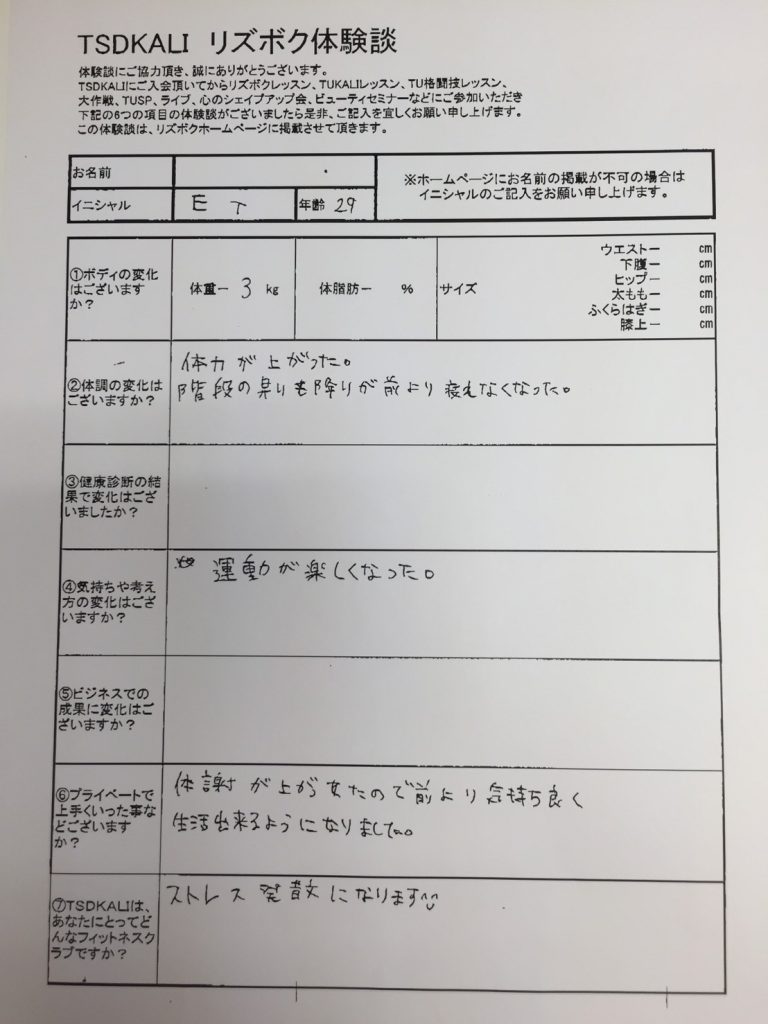 TSDKALI リズボク体験談
体験談にご協力頂き、誠にありがとうございます。
TSDKALIにご入会頂いてからリズボクレッスン、TUKALIレッスン、TU格闘技レッスン、
大作戦、TUSP、ライブ、心のシェイプアップ会、ビューティセミナーなどにご参加いただき
下記の6つの項目の体験談がございましたら是非、ご記入を宜しくお願い申し上げます。
この体験談は、リズボクホームページに掲載させて頂きます。
お名前
イニシャル E T 年齢 29
※ホームページにお名前の掲載が不可の場合は
イニシャルのご記入をお願い申し上げます。
①ボディの変化
はございます
か?
体重ー 3 kg
体脂肪ー %
サイズ
ウエストー cm
下腹ー cm
ヒップー cm
太ももー cm
ふくらはぎー cm
膝上ー cm
②体調の変化は
ございますか?
体力が上がった。
階段の昇りも降りが前より疲れなくなった。
③健康診断の結
果で変化はござ
いましたか?
④気持ちや考え
方の変化はござ
いますか?
運動が楽しくなった。
⑤ビジネスでの
成果に変化はご
ざいますか?
⑥プライベートで
上手くいった事な
どございます
か?
体謝が上がったので前より気持ち良く
生活出来るようになりました。
⑦TSDKALIは、
あなたにとってど
んなフィットネスク
ラブですか?
ストレス発散になります